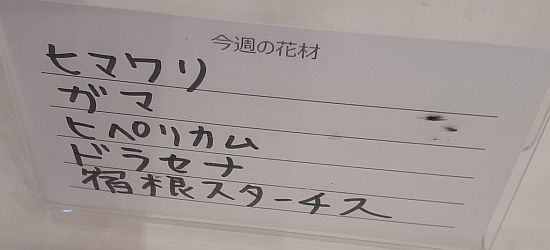 今週の花材
ヒマワリ
ガマ
ヒペリカム
ドラセナ
宿根スターチス